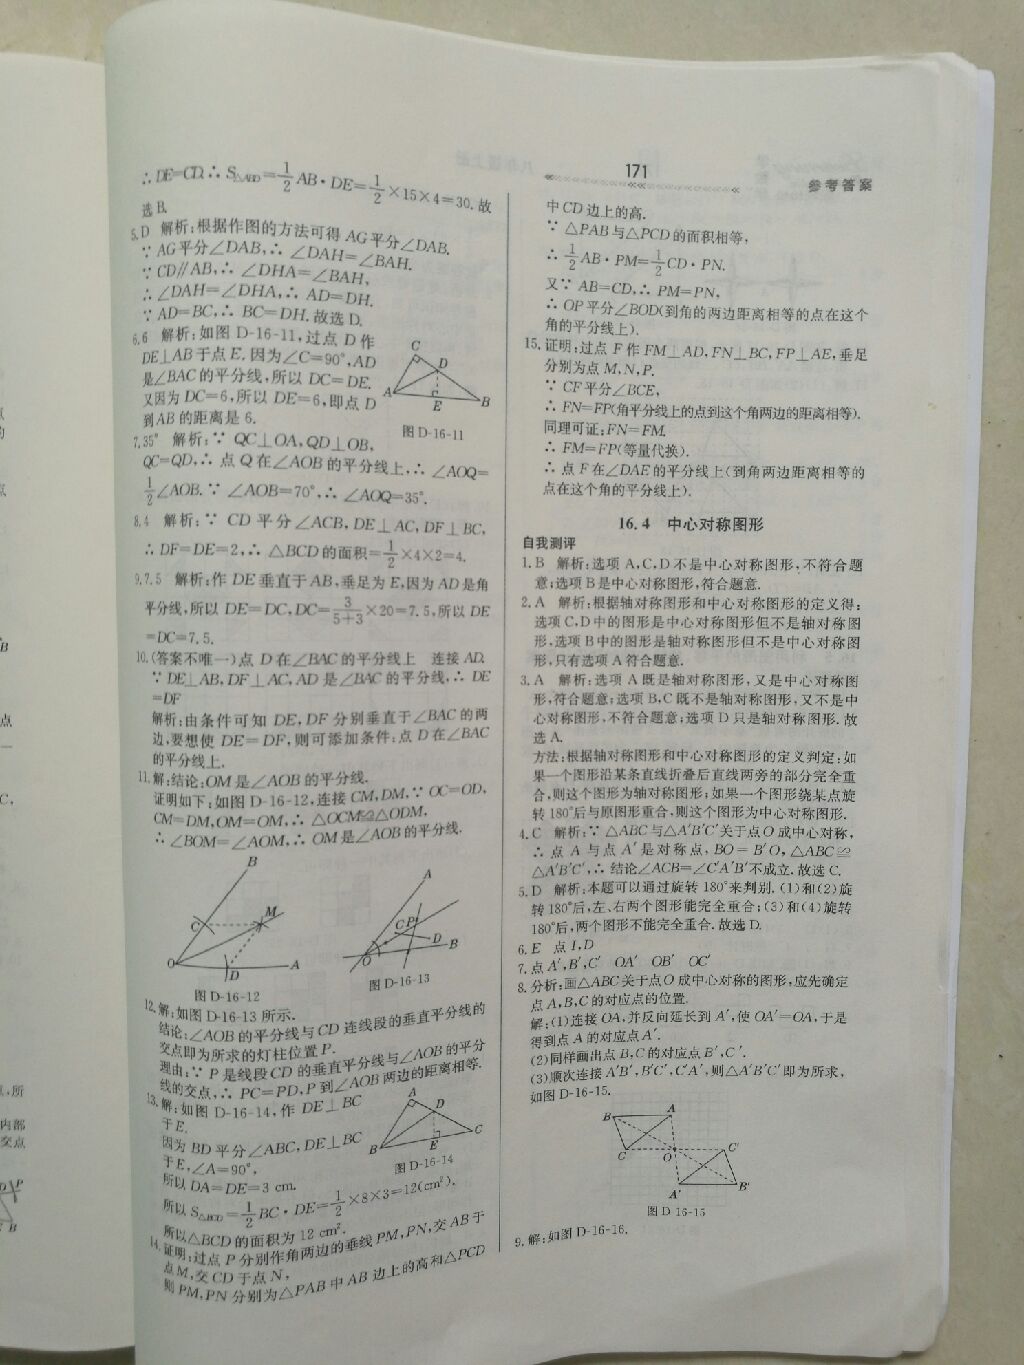 171
参考答案
∴DE=CD.∴S△ABD=1/2AB·DE=1/2×15×4=30.故
选B.
5.D 解析:根据作图的方法可得AG平分∠DAB.
∵AG平分∠DAB,∴∠DAH=∠BAH.
∵CD∥AB,∴∠DHA=∠BAH,
∴∠DAH=∠DHA,∴AD=DH.
∵AD=BC,∴BC=DH.故选D.
6.6 解析:如图D-16-11,过点D作
DE⊥AB于点E.因为∠C=90°,AD
是∠BAC的平分线,所以DC=DE.
又因为DC=6,所以DE=6,即点D
到AB的距离是6.
C
D
A
E
B
图D-16-11
7.35° 解析:∵QC⊥OA,QD⊥OB,
QC=QD,∴点Q在∠AOB的平分线上,∴∠AOQ=
1/2∠AOB.∵∠AOB=70°,∴∠AOQ=35°.
8.4 解析:∵CD平分∠ACB,DE⊥AC,DF⊥BC,
∴DF=DE=2,∴△BCD的面积=1/2×4×2=4.
9.7.5 解析:作DE垂直于AB,垂足为E,因为AD是角
平分线,所以DE=DC,DC=3/(5+3)×20=7.5,所以DE
=DC=7.5.
10.(答案不唯一)点D在∠BAC的平分线上 连接AD.
∵DE⊥AB,DF⊥AC,AD是∠BAC的平分线,∴DE
=DF
解析:由条件可知DE,DF分别垂直于∠BAC的两
边,要想使DE=DF,则可添加条件:点D在∠BAC
的平分线上.
11.解:结论:OM是∠AOB的平分线.
证明如下:如图D-16-12,连接CM,DM,∵OC=OD,
CM=DM,OM=OM,∴△OCM≌△ODM,
∴∠BOM=∠AOM,∴OM是∠AOB的平分线.
B
C
M
O
D
A
图D-16-12
A
C
P
D
B
O
图D-16-13
12.解:如图D-16-13所示.
结论:∠AOB的平分线与CD连线段的垂直平分线的
交点即为所求的灯柱位置P.
理由:∵P是线段CD的垂直平分线与∠AOB的平分
线的交点,∴PC=PD,P到∠AOB两边的距离相等.
13.解:如图D-16-14,作DE⊥BC
于E.
因为BD平分∠ABC,DE⊥BC
于E,∠A=90°,
所以DA=DE=3 cm.
所以S△BCD=1/2BC·DE=1/2×8×3=12(cm²).
所以△BCD的面积为12 cm².
A
D
B
E
C
图D-16-14
14.证明:过点P分别作角两边的垂线PM,PN,交AB于
点M,交CD于点N,
则PM,PN分别为△PAB中AB边上的高和△PCD
中CD边上的高.
∵△PAB与△PCD的面积相等,
∴1/2AB·PM=1/2CD·PN.
又∵AB=CD,∴PM=PN,
∴OP平分∠BOD(到角的两边距离相等的点在这个
角的平分线上).
15.证明:过点F作FM⊥AD,FN⊥BC,FP⊥AE,垂足
分别为点M,N,P.
∵CF平分∠BCE,
∴FN=FP(角平分线上的点到这个角两边的距离相等).
同理可证:FN=FM.
∴FM=FP(等量代换).
∴点F在∠DAE的平分线上(到角两边距离相等的
点在这个角的平分线上).
16.4 中心对称图形
自我测评
1.B 解析:选项A,C,D不是中心对称图形,不符合题
意;选项B是中心对称图形,符合题意.
2.A 解析:根据轴对称图形和中心对称图形的定义得:
选项C,D中的图形是中心对称图形但不是轴对称图
形,选项B中的图形是轴对称图形但不是中心对称图
形,只有选项A符合题意.
3.A 解析:选项A既是轴对称图形,又是中心对称图
形,符合题意;选项B,C既不是轴对称图形,又不是中
心对称图形,不符合题意;选项D只是轴对称图形.故
选A.
方法:根据轴对称图形和中心对称图形的定义判定:如
果一个图形沿某条直线折叠后直线两旁的部分完全重
合,则这个图形为轴对称图形;如果一个图形绕某点旋
转180°后与原图形重合,则这个图形为中心对称图形.
4.C 解析:∵△ABC与△A′B′C′关于点O成中心对称,
∴点A与点A′是对称点,BO=B′O,△ABC≌
△A′B′C′,∴结论∠ACB=∠C′A′B′不成立.故选C.
5.D 解析:本题可以通过旋转180°来判别.(1)和(2)旋
转180°后,左、右两个图形能完全重合;(3)和(4)旋转
180°后,两个图形不能完全重合.故选D.
6.E 点I,D
7.点A′,B′,C′ OA′ OB′ OC′
8.分析:画△ABC关于点O成中心对称的图形,应先确定
点A,B,C的对应点的位置.
解:(1)连接OA,并反向延长到A′,使OA′=OA,于是
得到点A的对应点A′.
(2)同样画出点B,C的对应点B′,C′.
(3)顺次连接A′B′,B′C′,C′A′,则△A′B′C′即为所求,
如图D-16-15.
B
A
C
O
C′
A′
B′
图D-16-15
9.解:如图D-16-16.